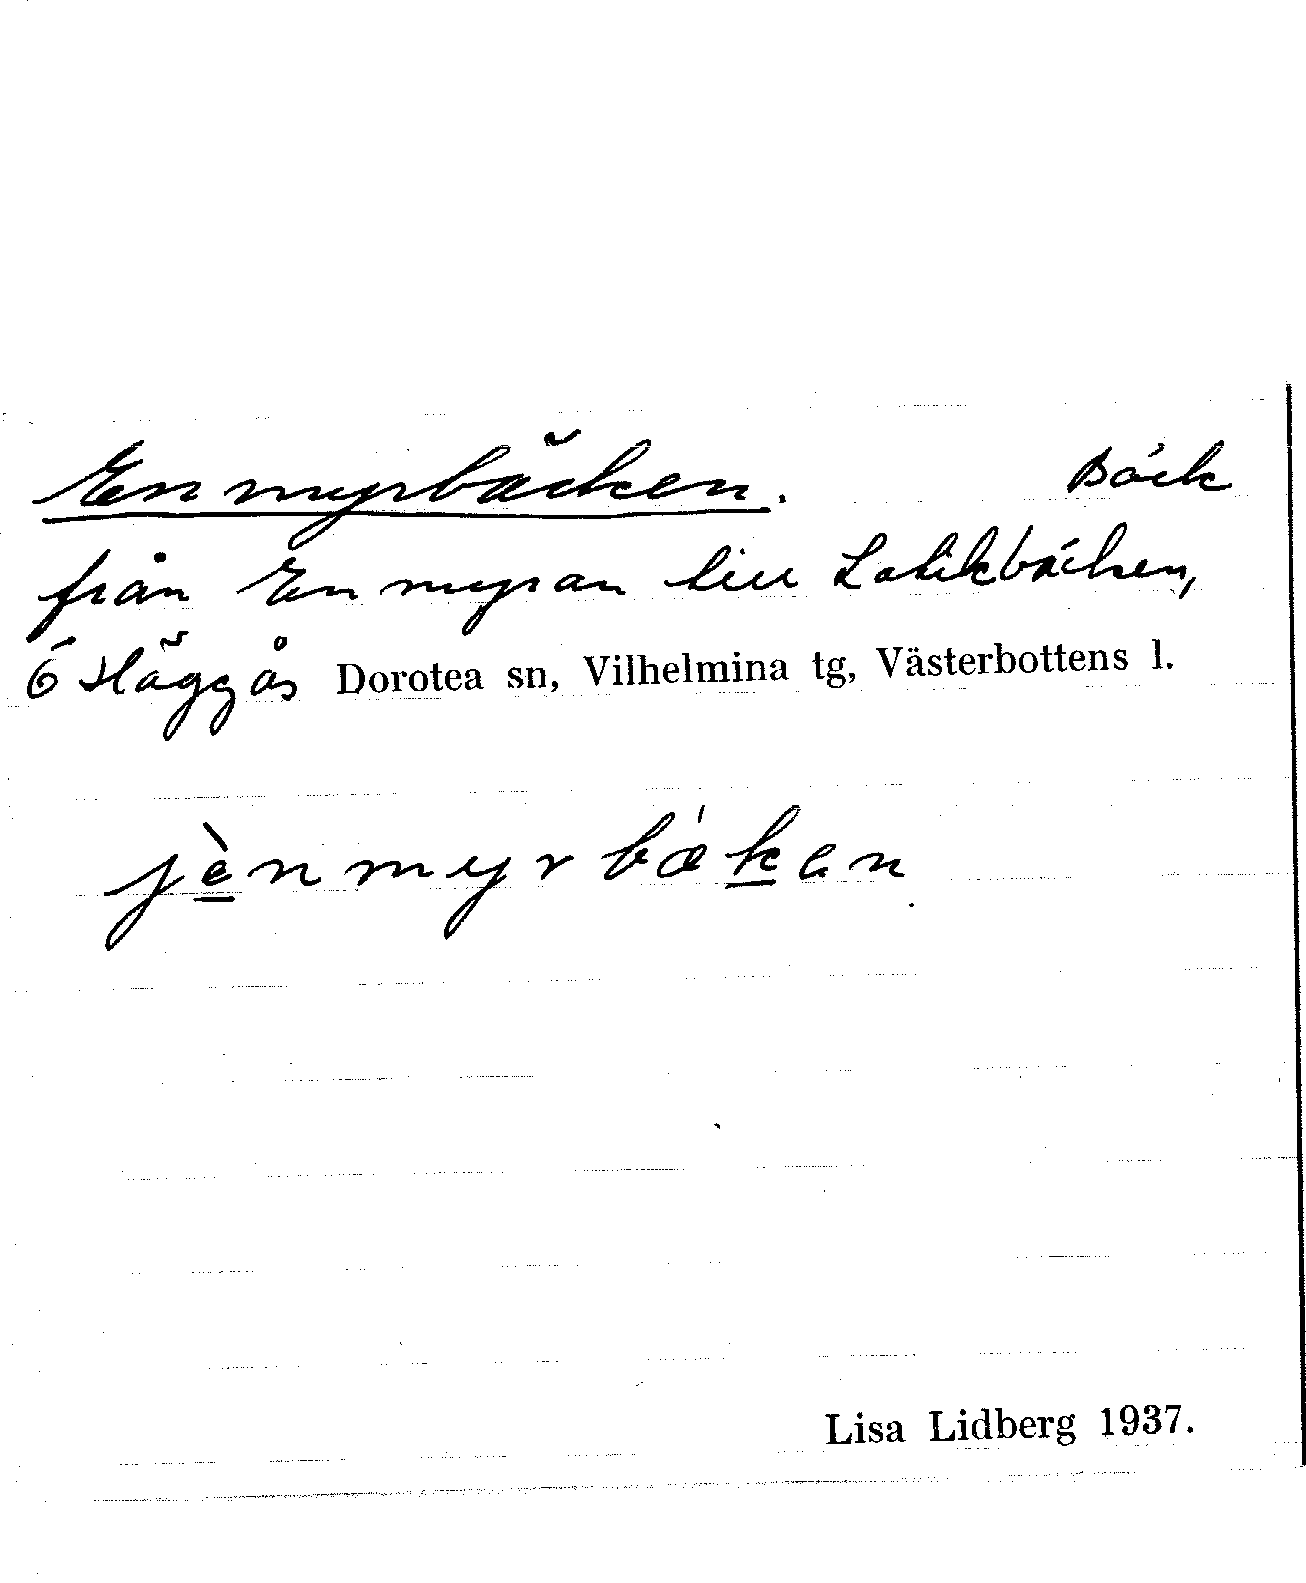 Enmyrbäcken. Bäck
från Enmyran till Latikbäcken,
6 Häggås Dorotea sn, Vilhelmina tg, Västerbottens l.
jè̱nmyrbækan
Lisa Lidberg 1937.